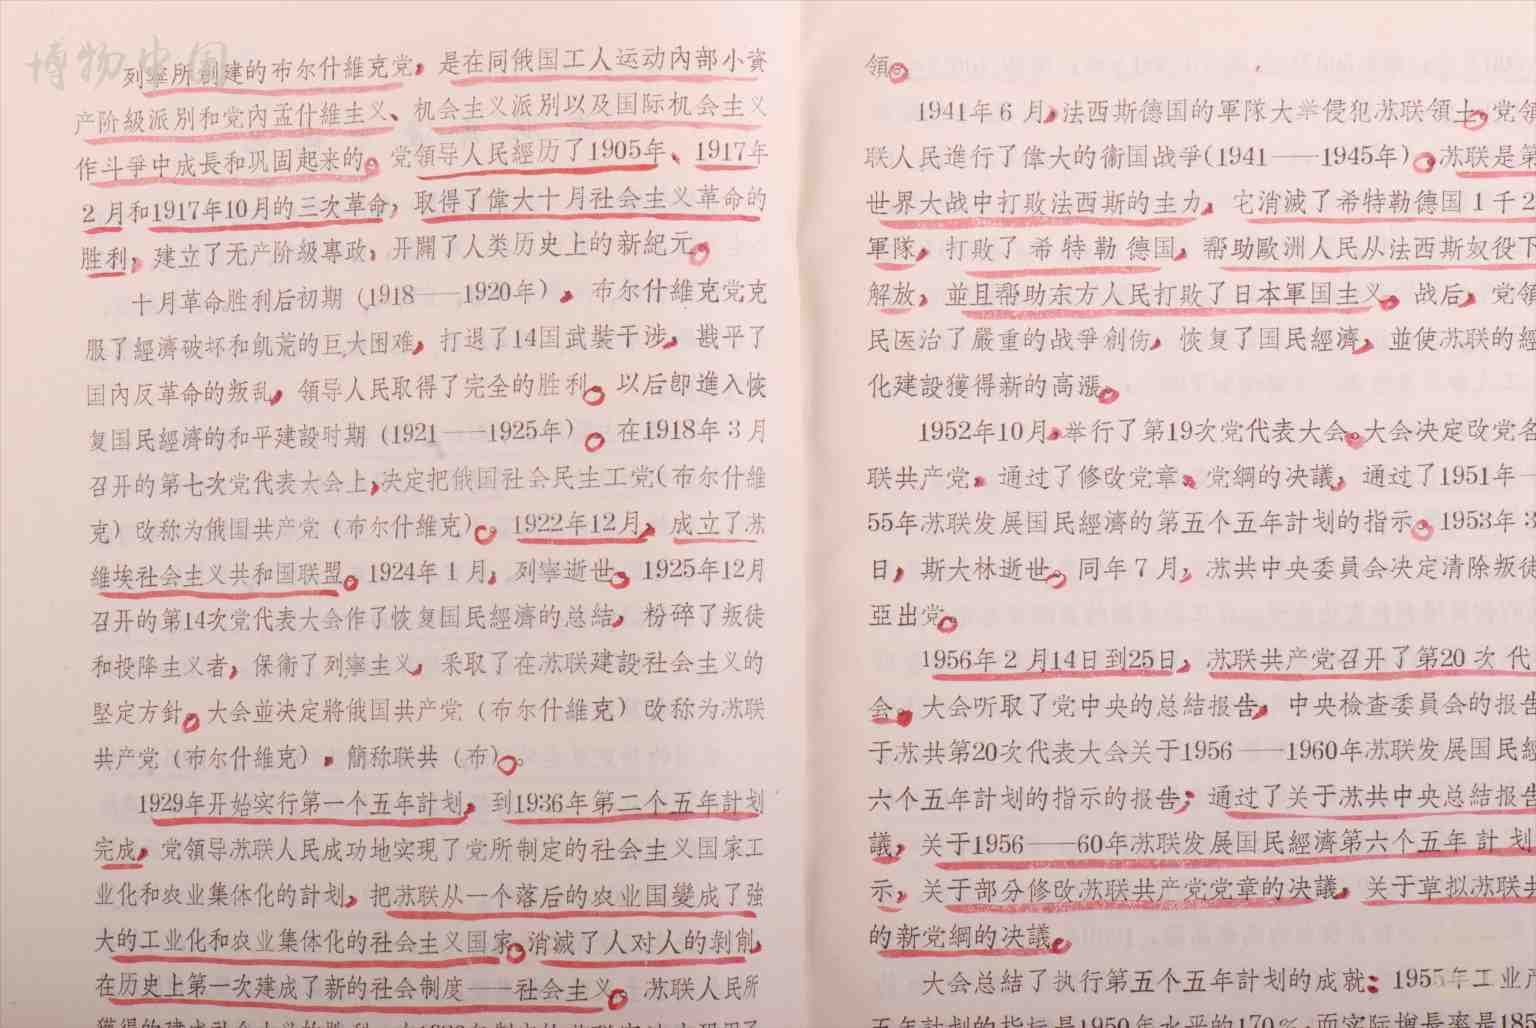 博物中国
列寧所創建的布尔什維克党，是在同俄国工人运动內部小資
产阶級派別和党內孟什維主义、机会主义派別以及国际机会主义
作斗爭中成長和巩固起来的。党領导人民經历了1905年、1917年
2月和1917年10月的三次革命，取得了偉大十月社会主义革命的
胜利，建立了无产阶級專政，开闢了人类历史上的新紀元。
十月革命胜利后初期（1918——1920年），布尔什維克党克
服了經濟破坏和飢荒的巨大困难，打退了14国武裝干涉，戡平了
国內反革命的叛乱，領导人民取得了完全的胜利。以后即進入恢
复国民經濟的和平建設时期（1921——1925年）。在1918年3月
召开的第七次党代表大会上，决定把俄国社会民主工党（布尔什維
克）改称为俄国共产党（布尔什維克）。1922年12月，成立了苏
維埃社会主义共和国联盟。1924年1月，列寧逝世。1925年12月
召开的第14次党代表大会作了恢复国民經濟的总結，粉碎了叛徒
和投降主义者，保衞了列寧主义，采取了在苏联建設社会主义的
堅定方針。大会並决定將俄国共产党（布尔什維克）改称为苏联
共产党（布尔什維克），簡称联共（布）。
1929年开始实行第一个五年計划，到1936年第二个五年計划
完成，党領导苏联人民成功地实現了党所制定的社会主义国家工
业化和农业集体化的計划，把苏联从一个落后的农业国變成了强
大的工业化和农业集体化的社会主义国家。消滅了人对人的剝削，
在历史上第一次建成了新的社会制度——社会主义。苏联人民所
領。
1941年6月，法西斯德国的軍隊大举侵犯苏联領土。党領
联人民進行了偉大的衞国战爭（1941——1945年）。苏联是第
世界大战中打敗法西斯的主力，它消滅了希特勒德国1千2
軍隊，打敗了希特勒德国，帮助歐洲人民从法西斯奴役下
解放，並且帮助东方人民打敗了日本軍国主义。战后，党領
民医治了嚴重的战爭創伤，恢复了国民經濟，並使苏联的經
化建設獲得新的高漲。
1952年10月，举行了第19次党代表大会。大会决定改党名
联共产党，通过了修改党章、党綱的决議，通过了1951年—
55年苏联发展国民經濟的第五个五年計划的指示。1953年3
日，斯大林逝世。同年7月，苏共中央委員会决定清除叛徒
亞出党。
1956年2月14日到25日，苏联共产党召开了第20次代
会。大会听取了党中央的总結报告，中央檢查委員会的报告
于苏共第20次代表大会关于1956——1960年苏联发展国民經
六个五年計划的指示的报告；通过了关于苏共中央总結报告
議，关于1956——60年苏联发展国民經濟第六个五年計划
示，关于部分修改苏联共产党党章的决議，关于草拟苏联共
的新党綱的决議。
大会总結了执行第五个五年計划的成就：1955年工业产
五年計划的指标是1950年水平的170％，而实际增長率是185